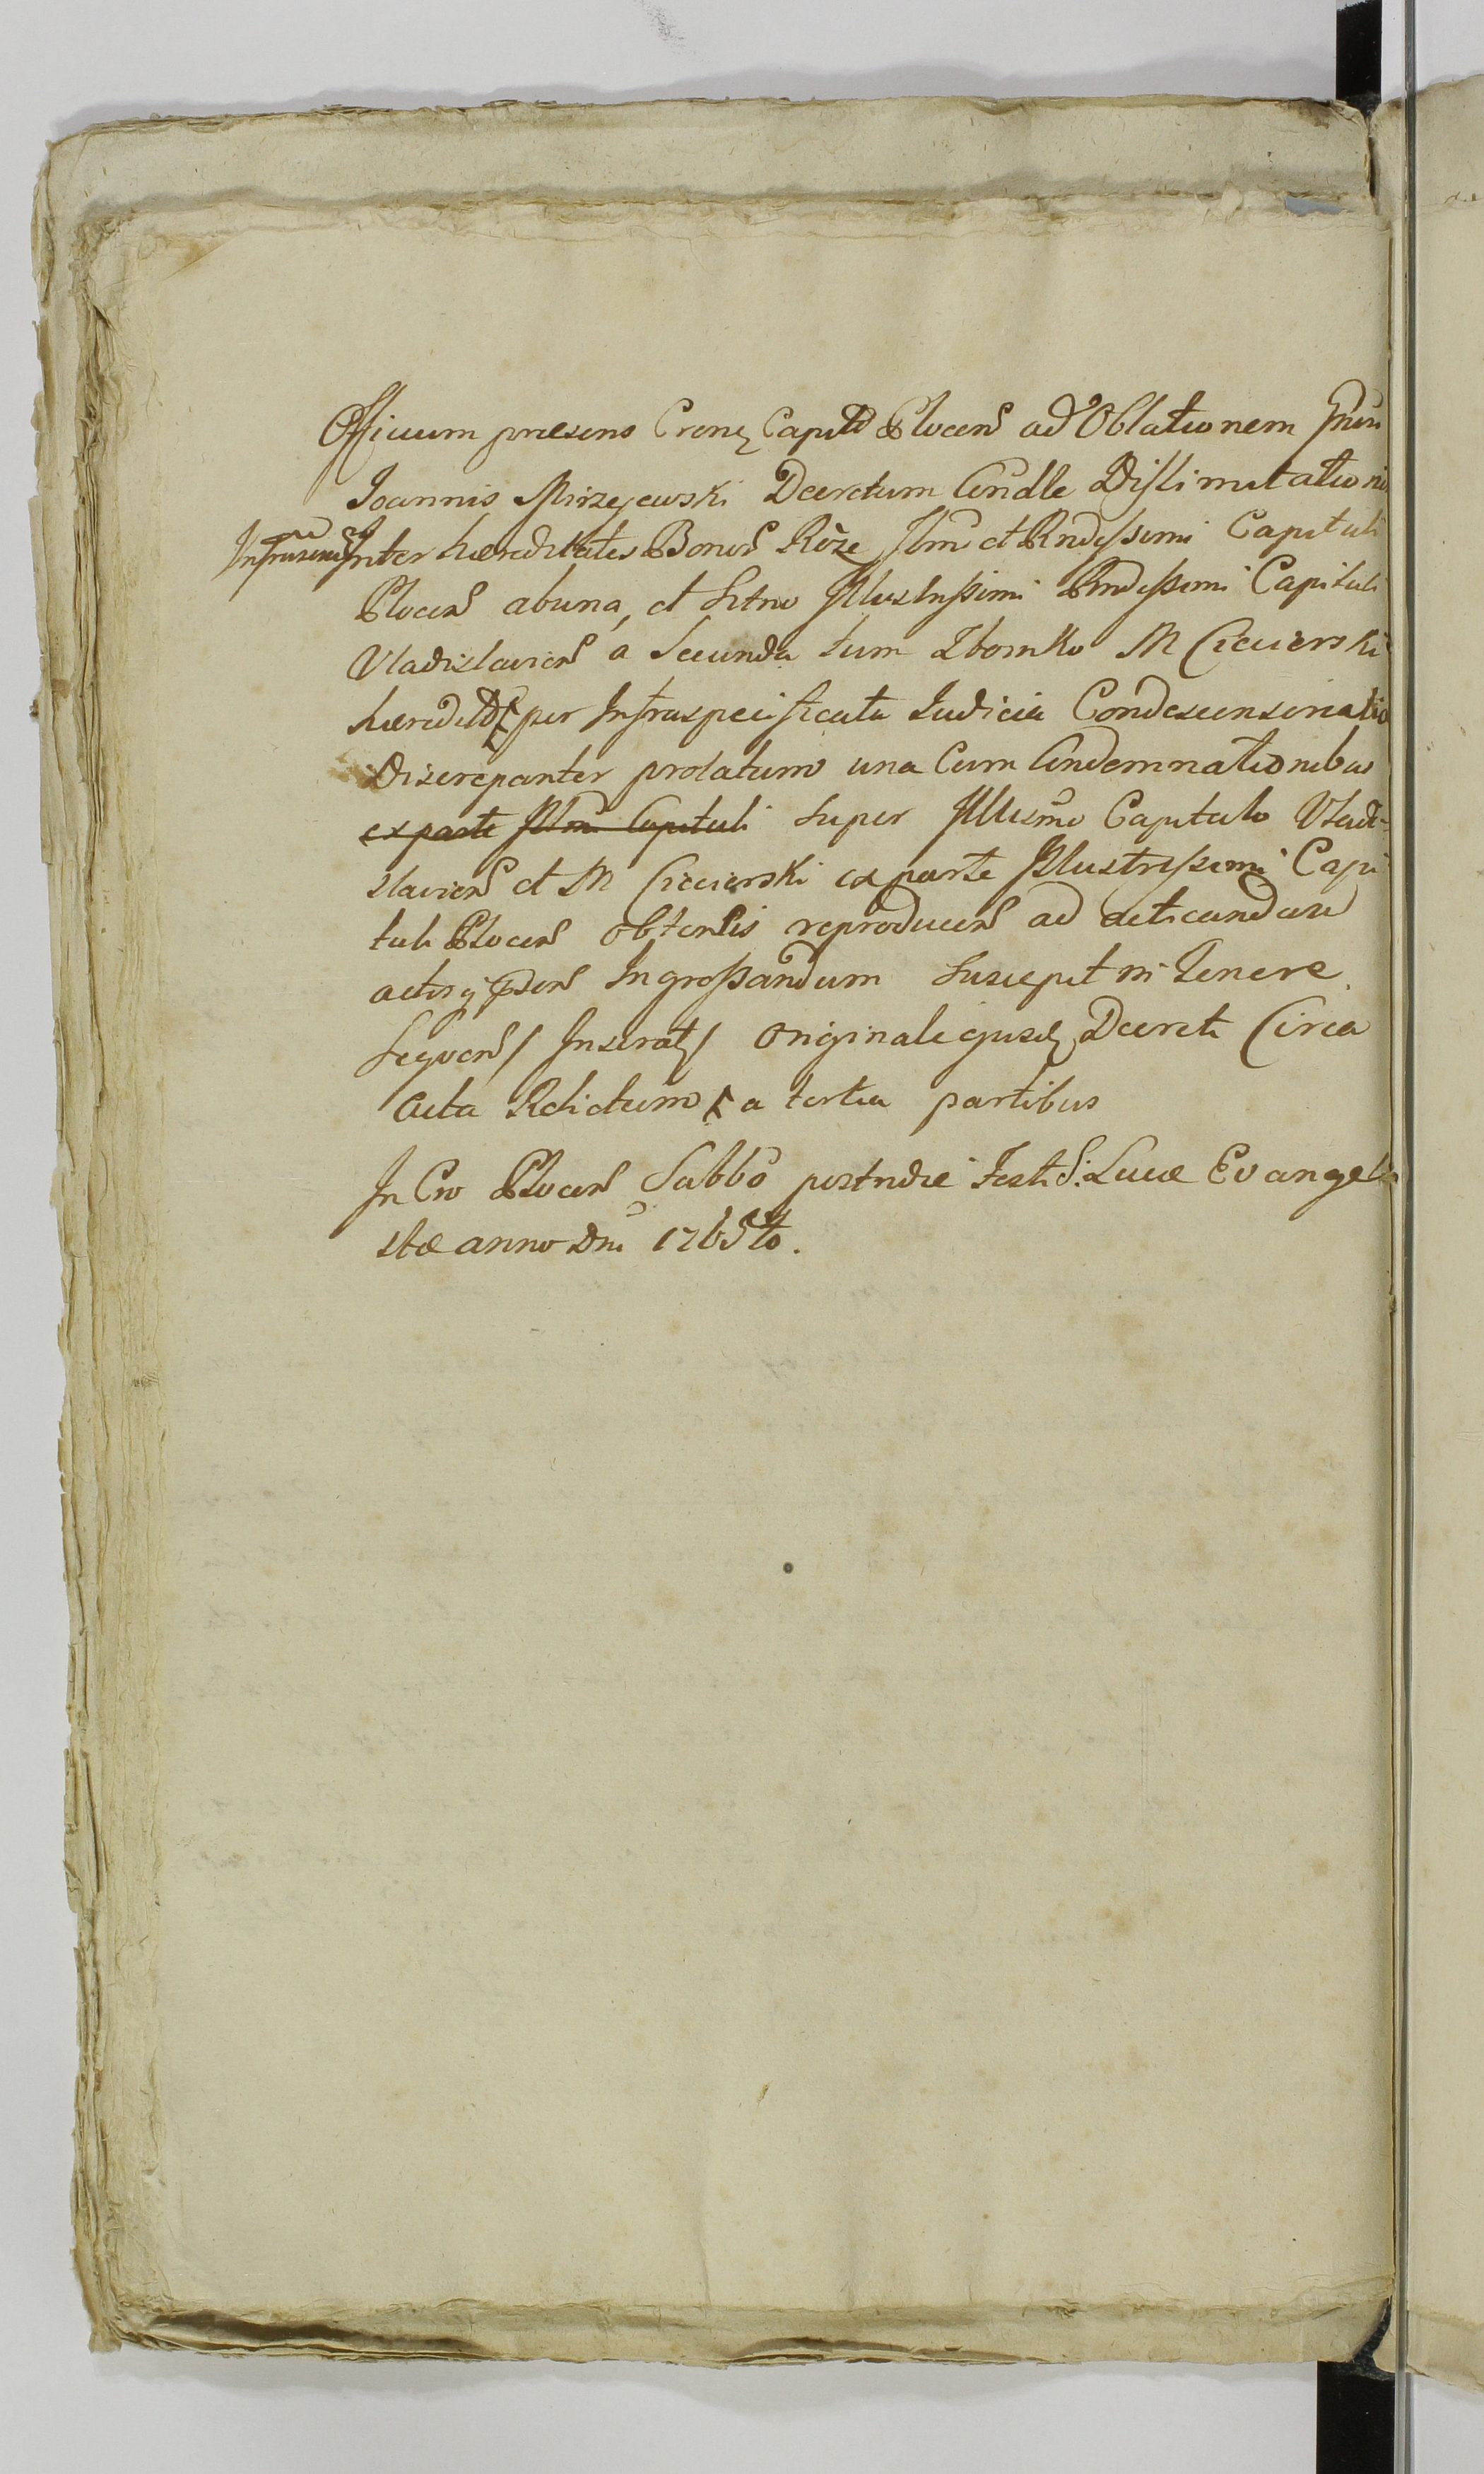 Officium præsens Crense Capitle Plocen ad Oblationem
Joannis Mirzejewski Decretum Condle Dislimitationis
Inter hæreditates Bonor Róże Illmi et Rndissimi Capituli
Plocen ab una, et Sctno Jllustrissimi Rndissimi Capituli
Vladislavien a Secunda tum Zbomko M Ciecierski
hæredit per Infraspecificata Judicia Condescensionalia
Discrepanter prolatum una Cum Condemnationibus
ex parte Jllmi Capituli Super Jllusmo Capitulo Vladi-
slavien et M Ciecierski ex parte Jllustrissimi Capi
tuli Plocen obtentis reproducen ad acticandum
actisq Ingrossandum Suscepit in Tenore
Sequen / Inserat / Originale ejusd Decreti Circa
Acta Relictum a tertia partibus
In Cro Plocen Sabbo postridie Festi S: Lucæ Evangeli
stæ anno Dni 1765to.